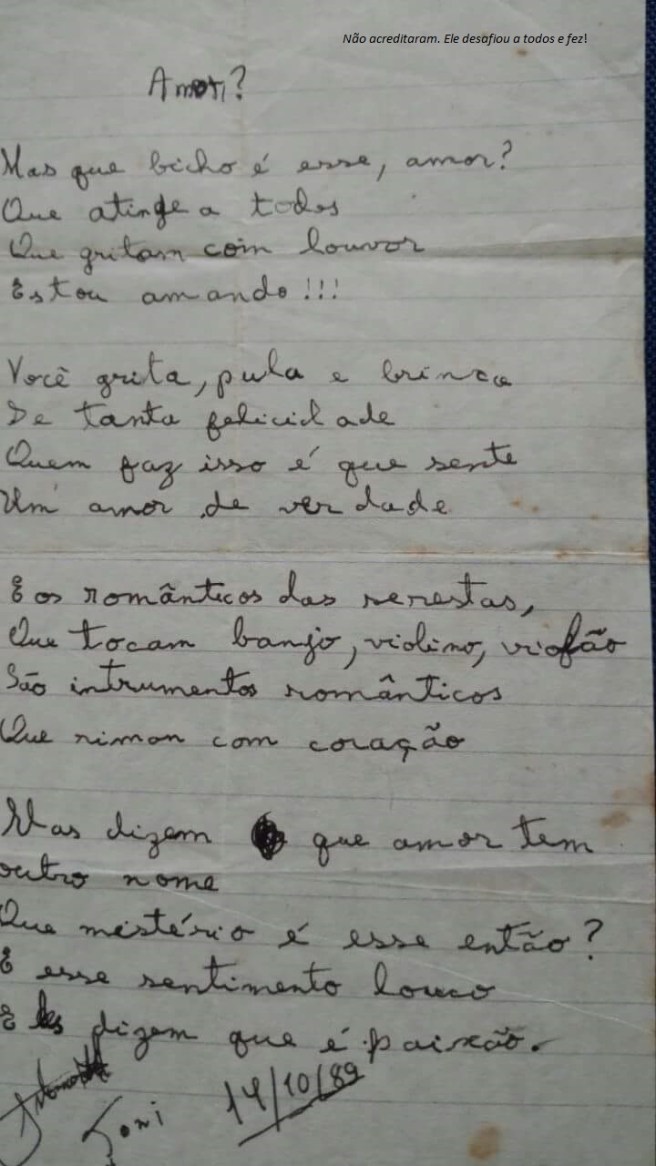 Não acreditaram. Ele desafiou a todos e fez!
Amor?
Mas que bicho é esse, amor?
Que atinge a todos
Que gritam com louvor
Estou amando!!!
Você grita, pula e brinca
De tanta felicidade
Quem faz isso é que sente
Um amor de verdade
E os românticos das serestas,
Que tocam banjo, violino, violão
São intrumentos românticos
Que rimam com coração
Mas dizem que amor tem
outro nome
Que mistério é esse então?
E esse sentimento louco
E les dizem que é paixão.
Toni 14/10/89